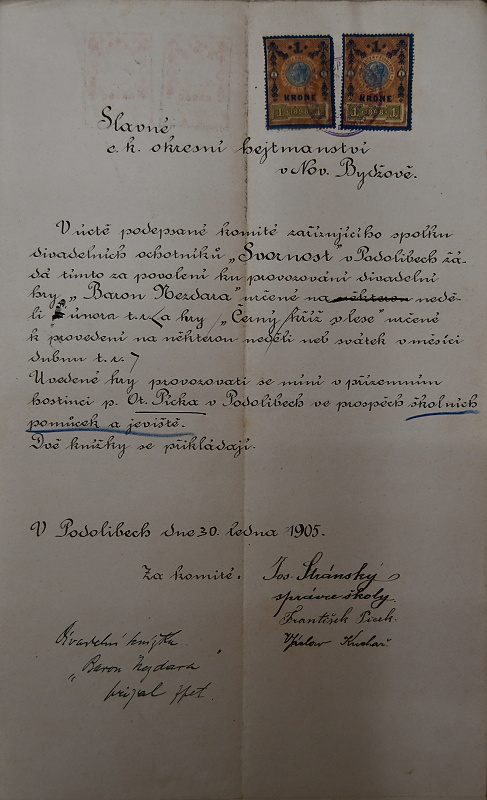 1 1
KRONE KRONE
1 1 1 1
Slavné
c. k. okresní hejtmanství
v Nov. Bydžově.
V úctě podepsané komité zařizujícího spolku
divadelních ochotníků „Svornost" v Podolibech žá-
dá tímto za povolení ku provozování divadelní
hry „Baron Nezdara" určené na některou nedě-
li února t. r. a hry „Černý kříž v lese" určené
k provedení na některou neděli neb svátek v měsíci
dubnu t. r.
Uvedené hry provozovati se míní v přízemním
hostinci p. Ot. Picka v Podolibech ve prospěch školních
pomůcek a jeviště.
Dvě knížky se přikládají.
V Podolibech dne 30. ledna 1905.
Za komité:
Jos. Stránský
správce školy.
František Picek
Václav Kuchař
Divadelní knížka
„Baron Nezdara"
přijal zpět.